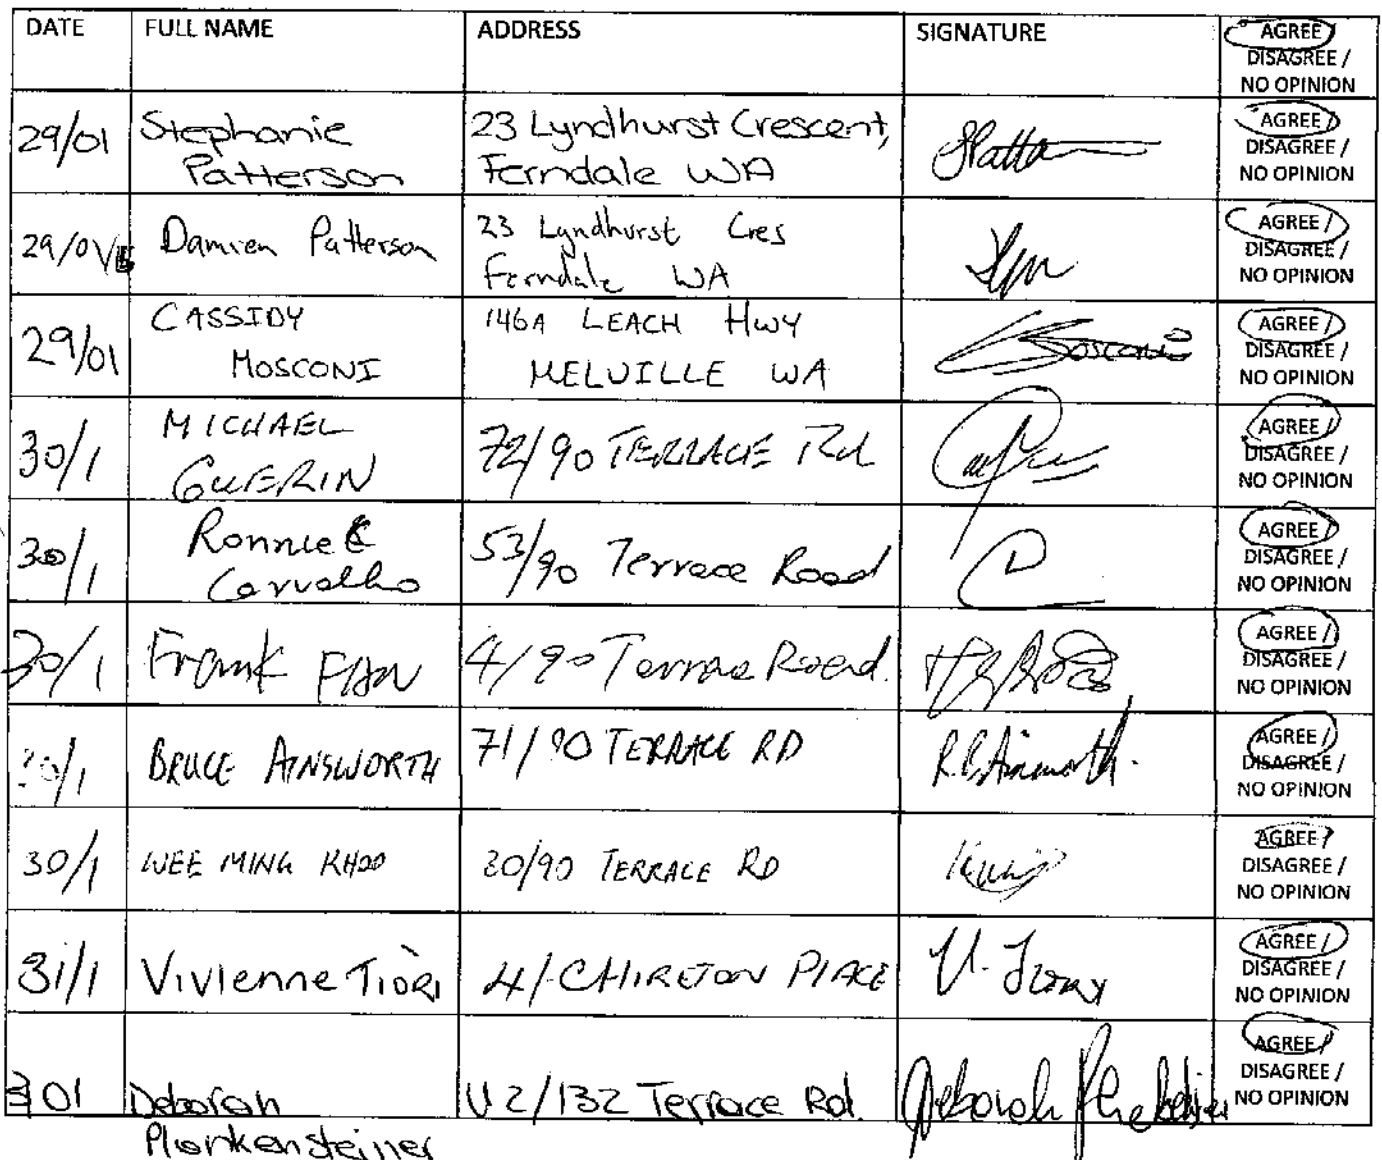 DATE FULL NAME ADDRESS SIGNATURE AGREE /
DISAGREE /
NO OPINION
29/01 Stephanie Patterson 23 Lyndhurst Crescent, Ferndale WA AGREE /
DISAGREE /
NO OPINION
29/01 Damien Patterson 23 Lyndhurst Cres Ferndale WA AGREE /
DISAGREE /
NO OPINION
29/01 CASSIDY MOSCONI 146A LEACH HWY MELVILLE WA AGREE /
DISAGREE /
NO OPINION
30/1 MICHAEL GUERIN 72/90 TERRACE Rd AGREE /
DISAGREE /
NO OPINION
30/1 Ronnie Carvalho 53/90 Terrace Road AGREE /
DISAGREE /
NO OPINION
30/1 Frank 4/90 Terrace Road. AGREE /
DISAGREE /
NO OPINION
30/1 BRUCE AINSWORTH 71/90 TERRACE RD R.B. Ainsworth. AGREE /
DISAGREE /
NO OPINION
30/1 WEE MING KHOO 30/90 TERRACE RD AGREE /
DISAGREE /
NO OPINION
31/1 Vivienne 4/- PLACE V. AGREE /
DISAGREE /
NO OPINION
301 Deborah U2/132 Terrace Rd. Deborah AGREE /
DISAGREE /
NO OPINION
Plankensteiner